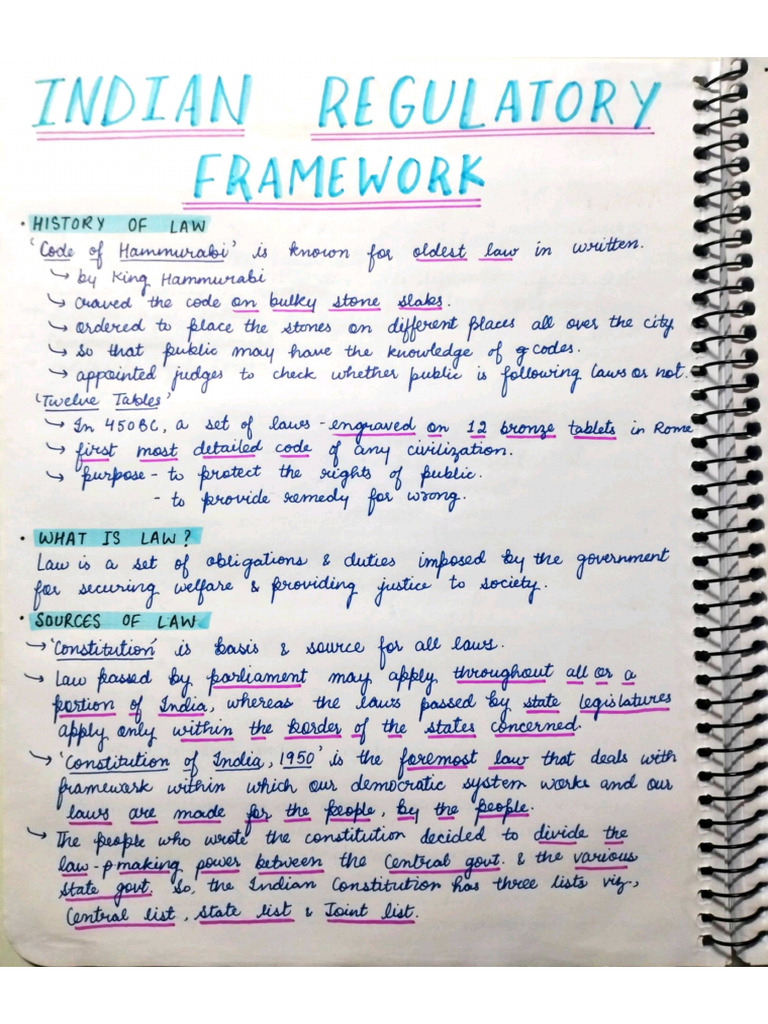 INDIAN REGULATORY
FRAMEWORK
• HISTORY OF LAW
'Code of Hammurabi' is known for oldest law in written.
→ by King Hammurabi
→ craved the code on bulky stone slabs.
→ ordered to place the stones on different places all over the city
→ So that public may have the knowledge of codes.
→ appointed judges to check whether public is following laws or not.
'Twelve Tables'
→ In 450BC, a set of laws - engraved on 12 bronze tablets in Rome
→ first most detailed code of any civilization.
→ purpose - to protect the rights of public.
- to provide remedy for wrong.
• WHAT IS LAW?
Law is a set of obligations & duties imposed by the government
for securing welfare & providing justice to society.
• SOURCES OF LAW
→ 'Constitution' is basis & source for all laws.
→ Law passed by parliament may apply throughout all or a
portion of India, whereas the laws passed by state legislatures
apply only within the border of the states concerned.
→ 'Constitution of India, 1950' is the foremost law that deals with
framework within which our democratic system works and our
laws are made for the people, by the people.
→ The people who wrote the constitution decided to divide the
law-making power between the Central govt. & the various
State govt. So, the Indian Constitution has three lists viz.,
Central list, State list & Joint list.